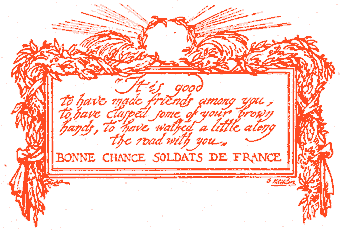 "It is good
to have made friends among you,
to have clasped some of your brown
hands, to have walked a little along
the road with you"
BONNE CHANCE SOLDATS DE FRANCE